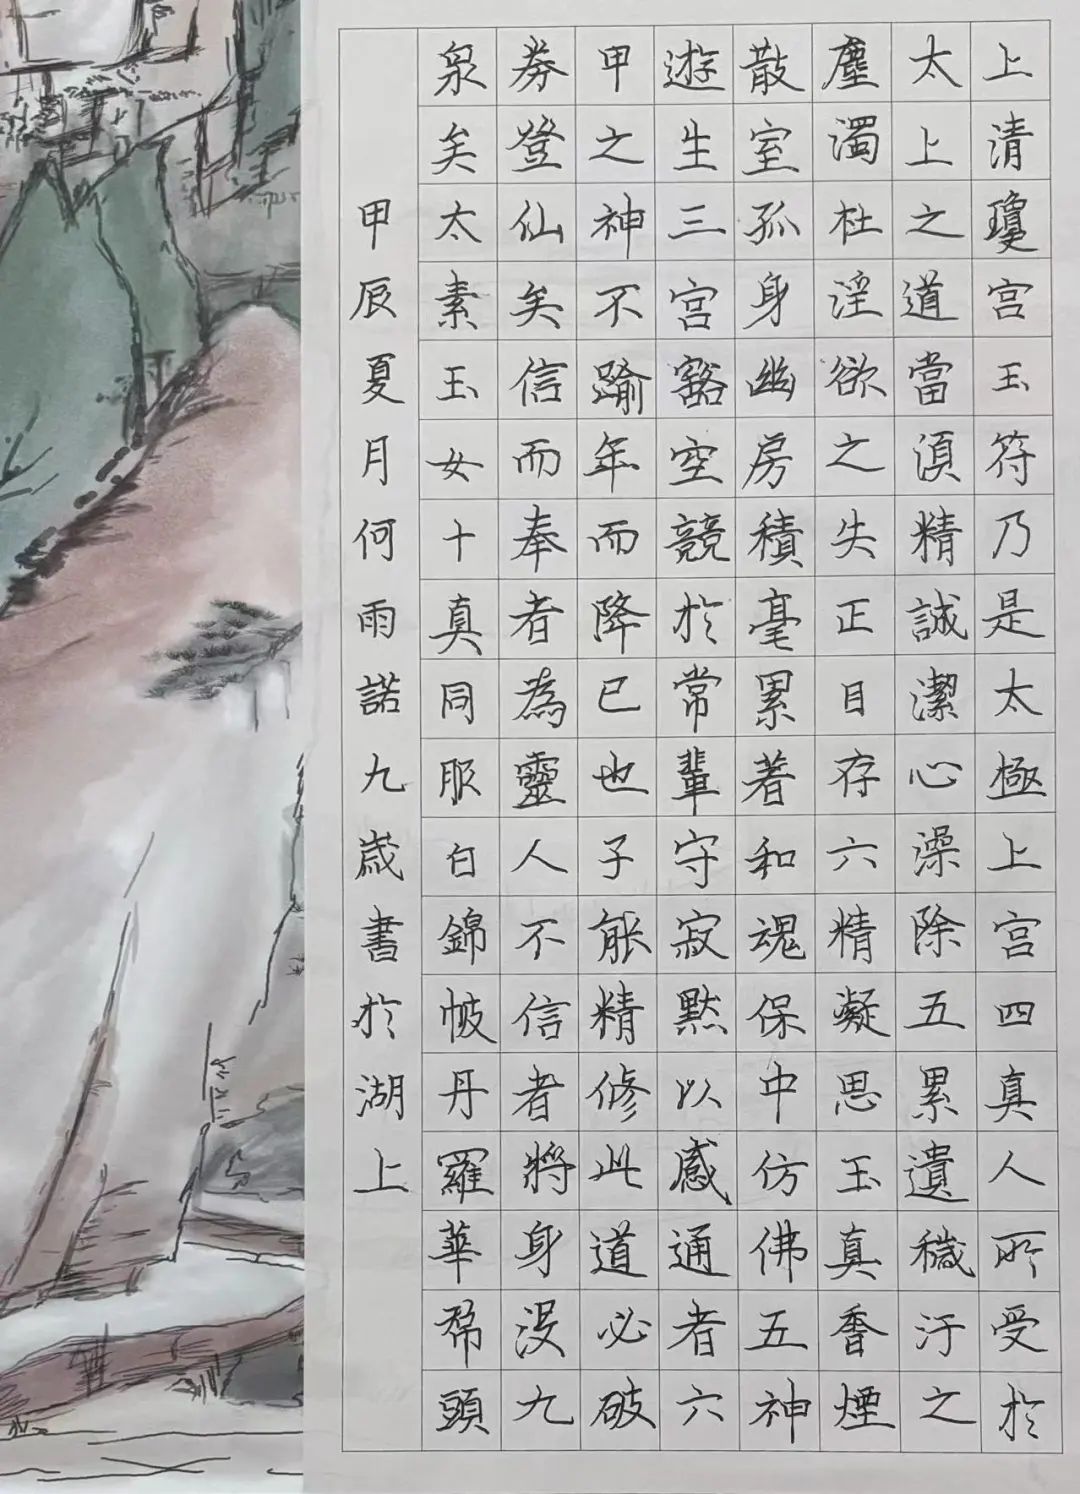 上清瓊宮玉符乃是太極上宮四真人所受於
太上之道當須精誠潔心澡除五累遺穢汙之
塵濁杜淫欲之失正目存六精凝思玉真香煙
散室孤身幽房積毫累著和魂保中仿佛五神
遊生三宮豁空競於常輩守寂默以感通者六
甲之神不踰年而降已也子能精修此道必破
券登仙矣信而奉者為靈人不信者將身沒九
泉矣太素玉女十真同服白錦帔丹羅華帬頭
甲辰夏月何雨諾九歲書於湖上